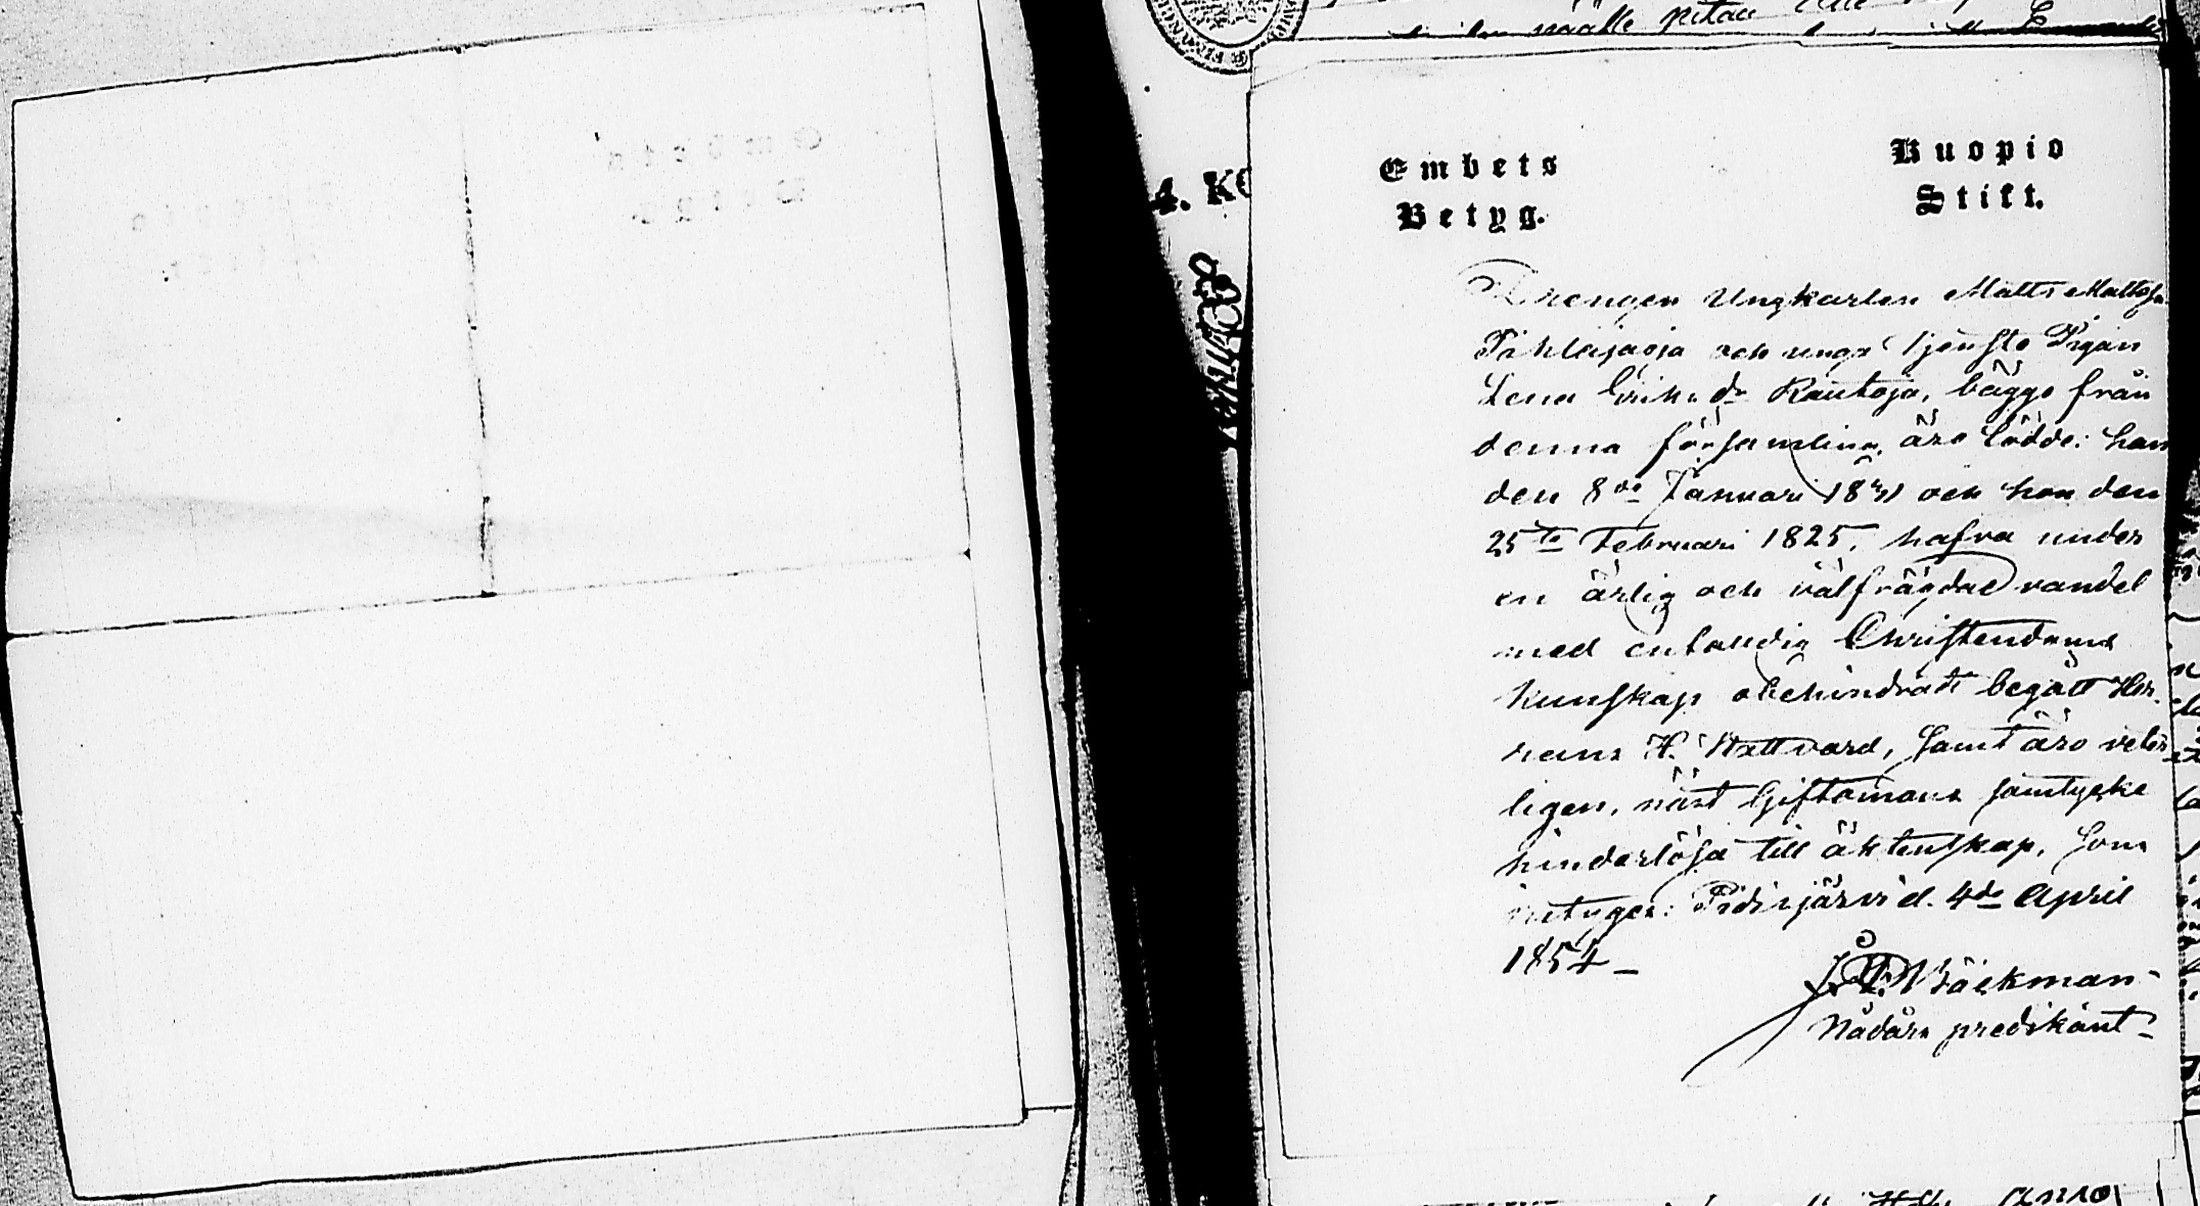 näälle pitää
4. KO
Embets
Betyg.
Kuopio
Stift.
Drengen Ungkarlen Matts Mattss.
Pihlajaoja och unga tjenste Pigan
Lena Eriks dr Rautoja, bägge från
denna församling, äro födde: han
den 8de Januari 1831 och hon den
25te Februari 1825, hafva under
en ärlig och välfrägdad vandel
med enfaldig Christendoms
kunskap obehindradt begått Her-
rans H. Nattvard, samt äro veter-
ligen, näst Giftomans samtycke
hinderlösa till äktenskap, som
intygar: Pidisjärvi d. 4de April
1854_
Böckman
Nådårs predikant_